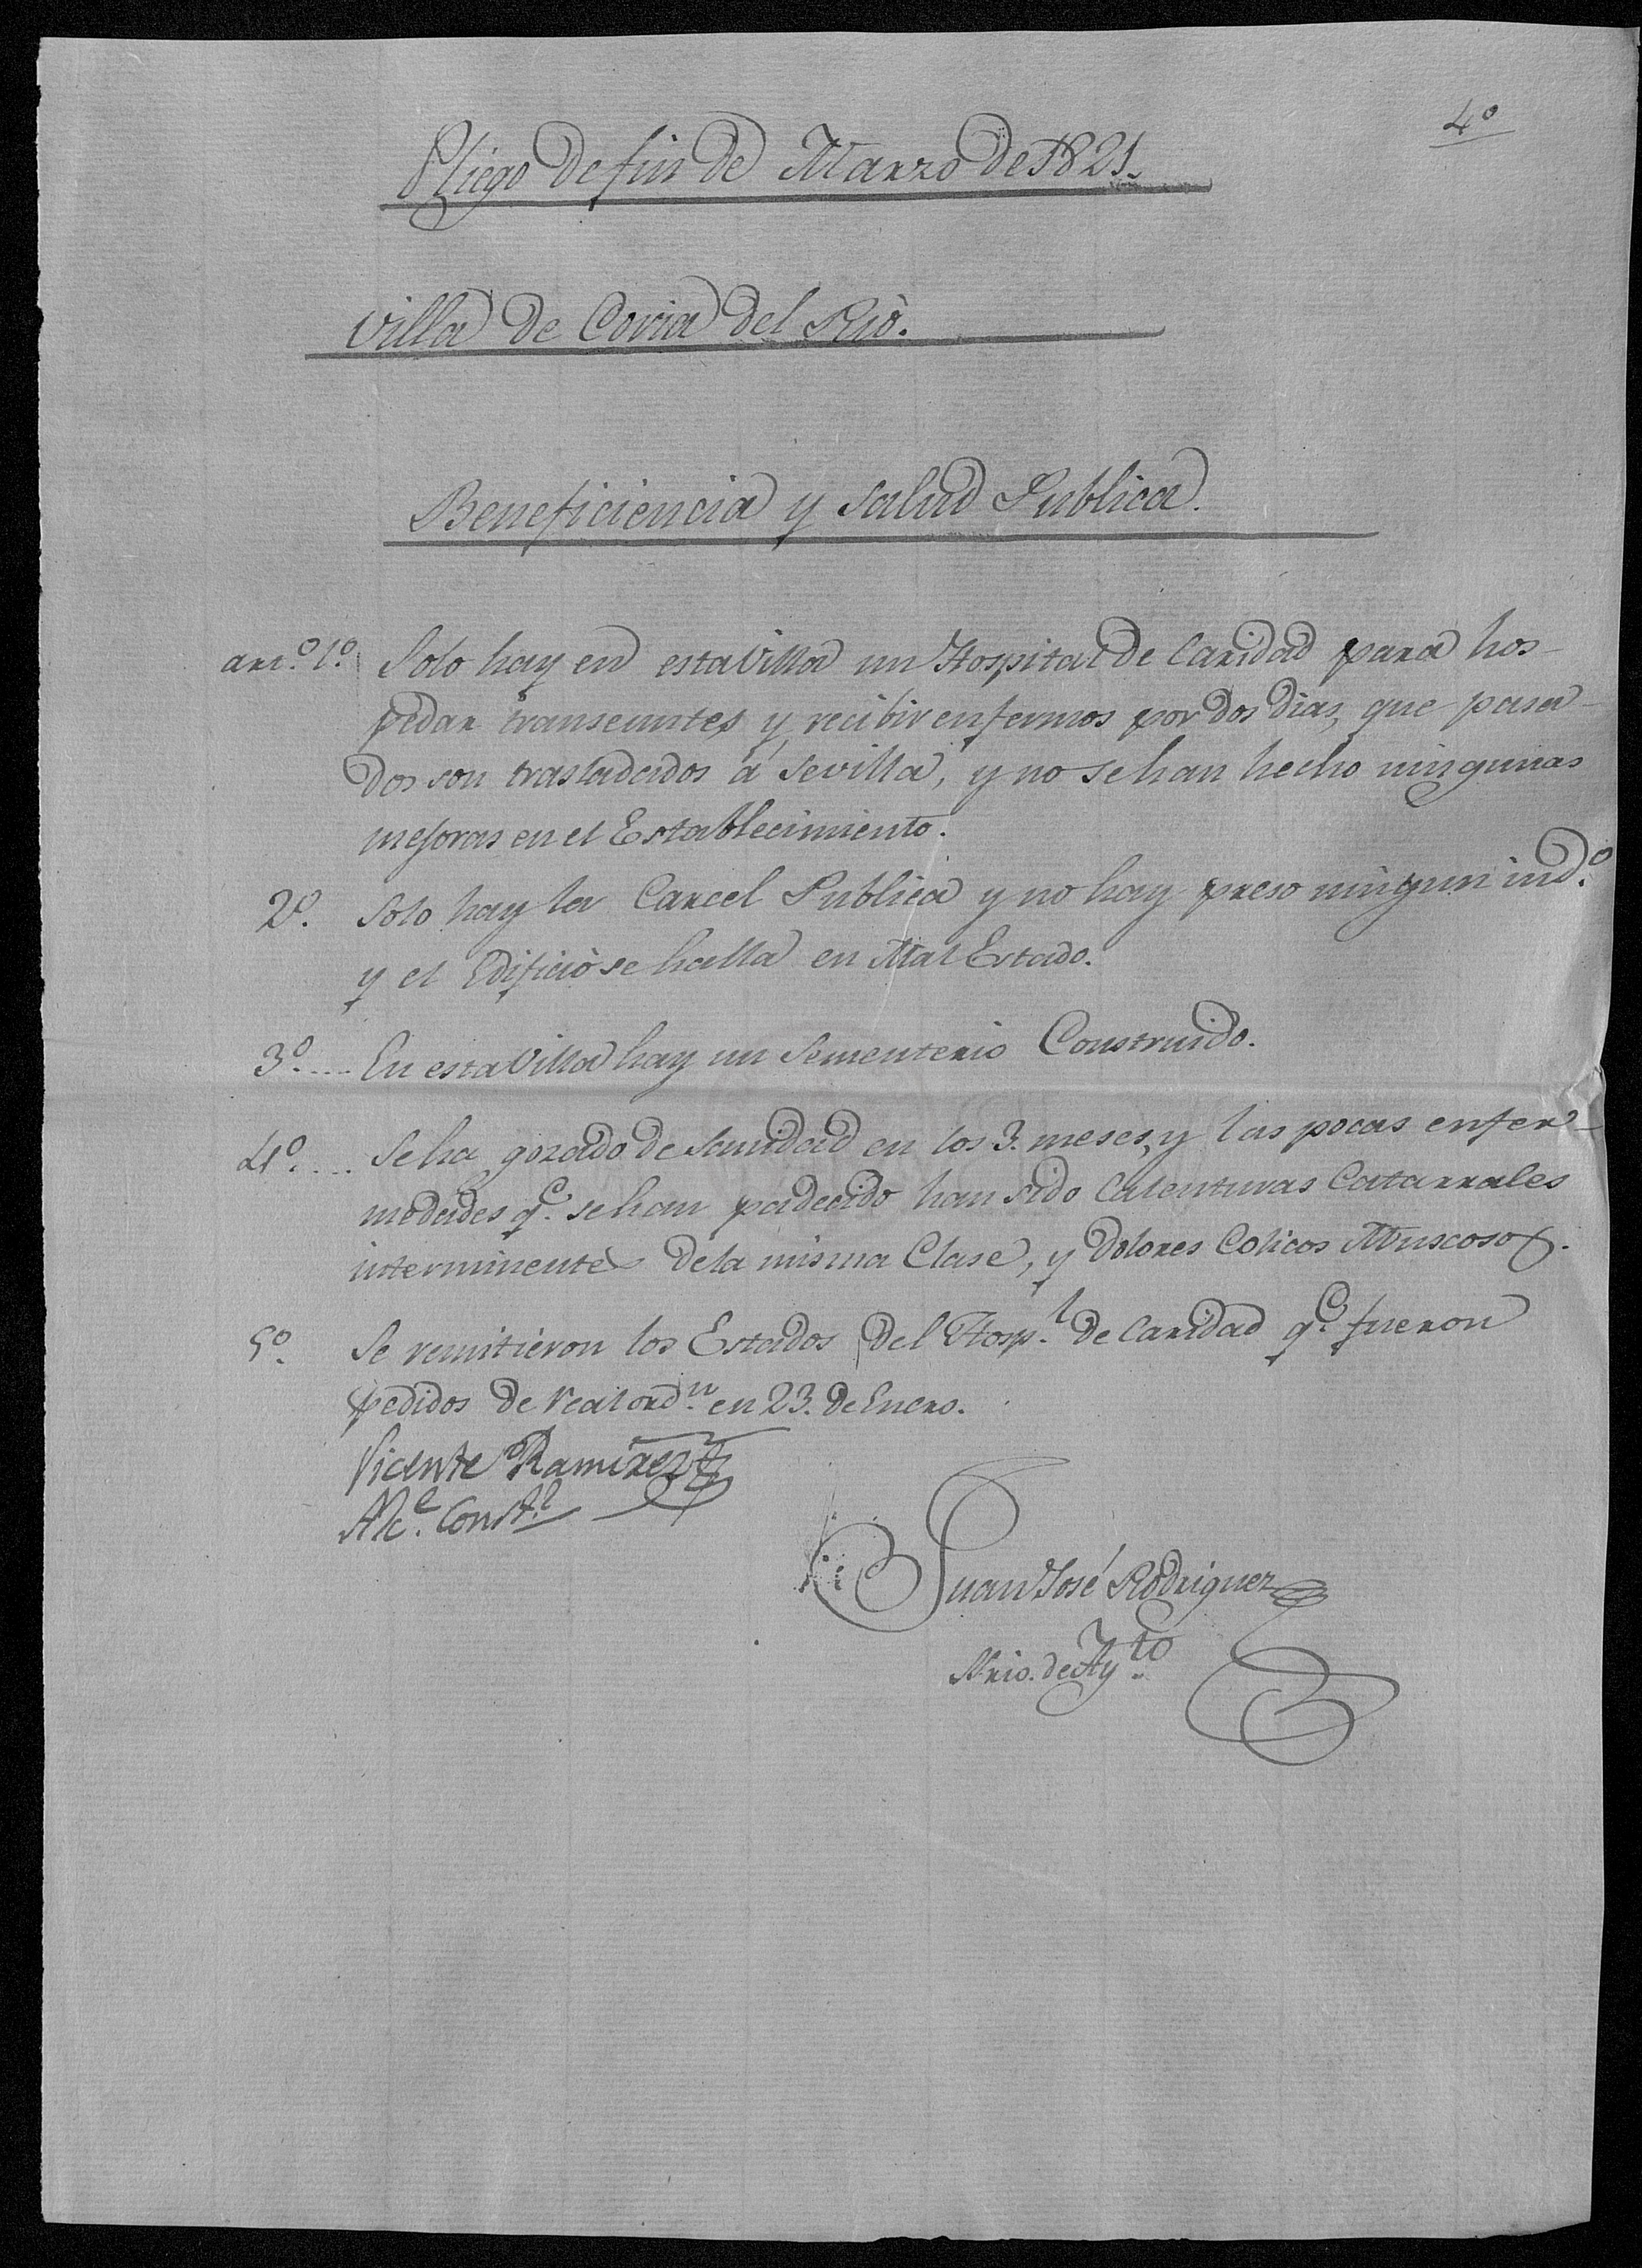 4º
Pliego de fin de Marzo de 1821.
Villa de Coria del Rio.
Beneficiencia y Salud Publica.
art.º 1º. Solo hay en esta Villa un Hospital de Caridad para hos-
pedar transeuntes y recibir enfermos por dos dias, que pasa-
dos son trasladados á Sevilla, y no se han hecho ningunas
mejoras en el Establecimiento.
2º. Solo hay la Carcel Publica y no hay preso ningun ind.º
y el Edificio se halla en Mal Estado.
3º.... En esta Villa hay un Sementerio Construido.
4º.... Se ha gozado de Sanidad en los 3. meses, y las pocas enfer-
medades q.e se han padecido han sido Calenturas Catarrales
interminentes de la misma Clase, y Dolores Colicos Muscosos.
5º. Se remitieron los Estados del Hosp.l de Caridad q.e fueron
pedidos de real ord.n en 23. de Enero.
Vicente Ramirez
Alc.e Const.l
Juan José Rodriguez
Srio. de Ay.to